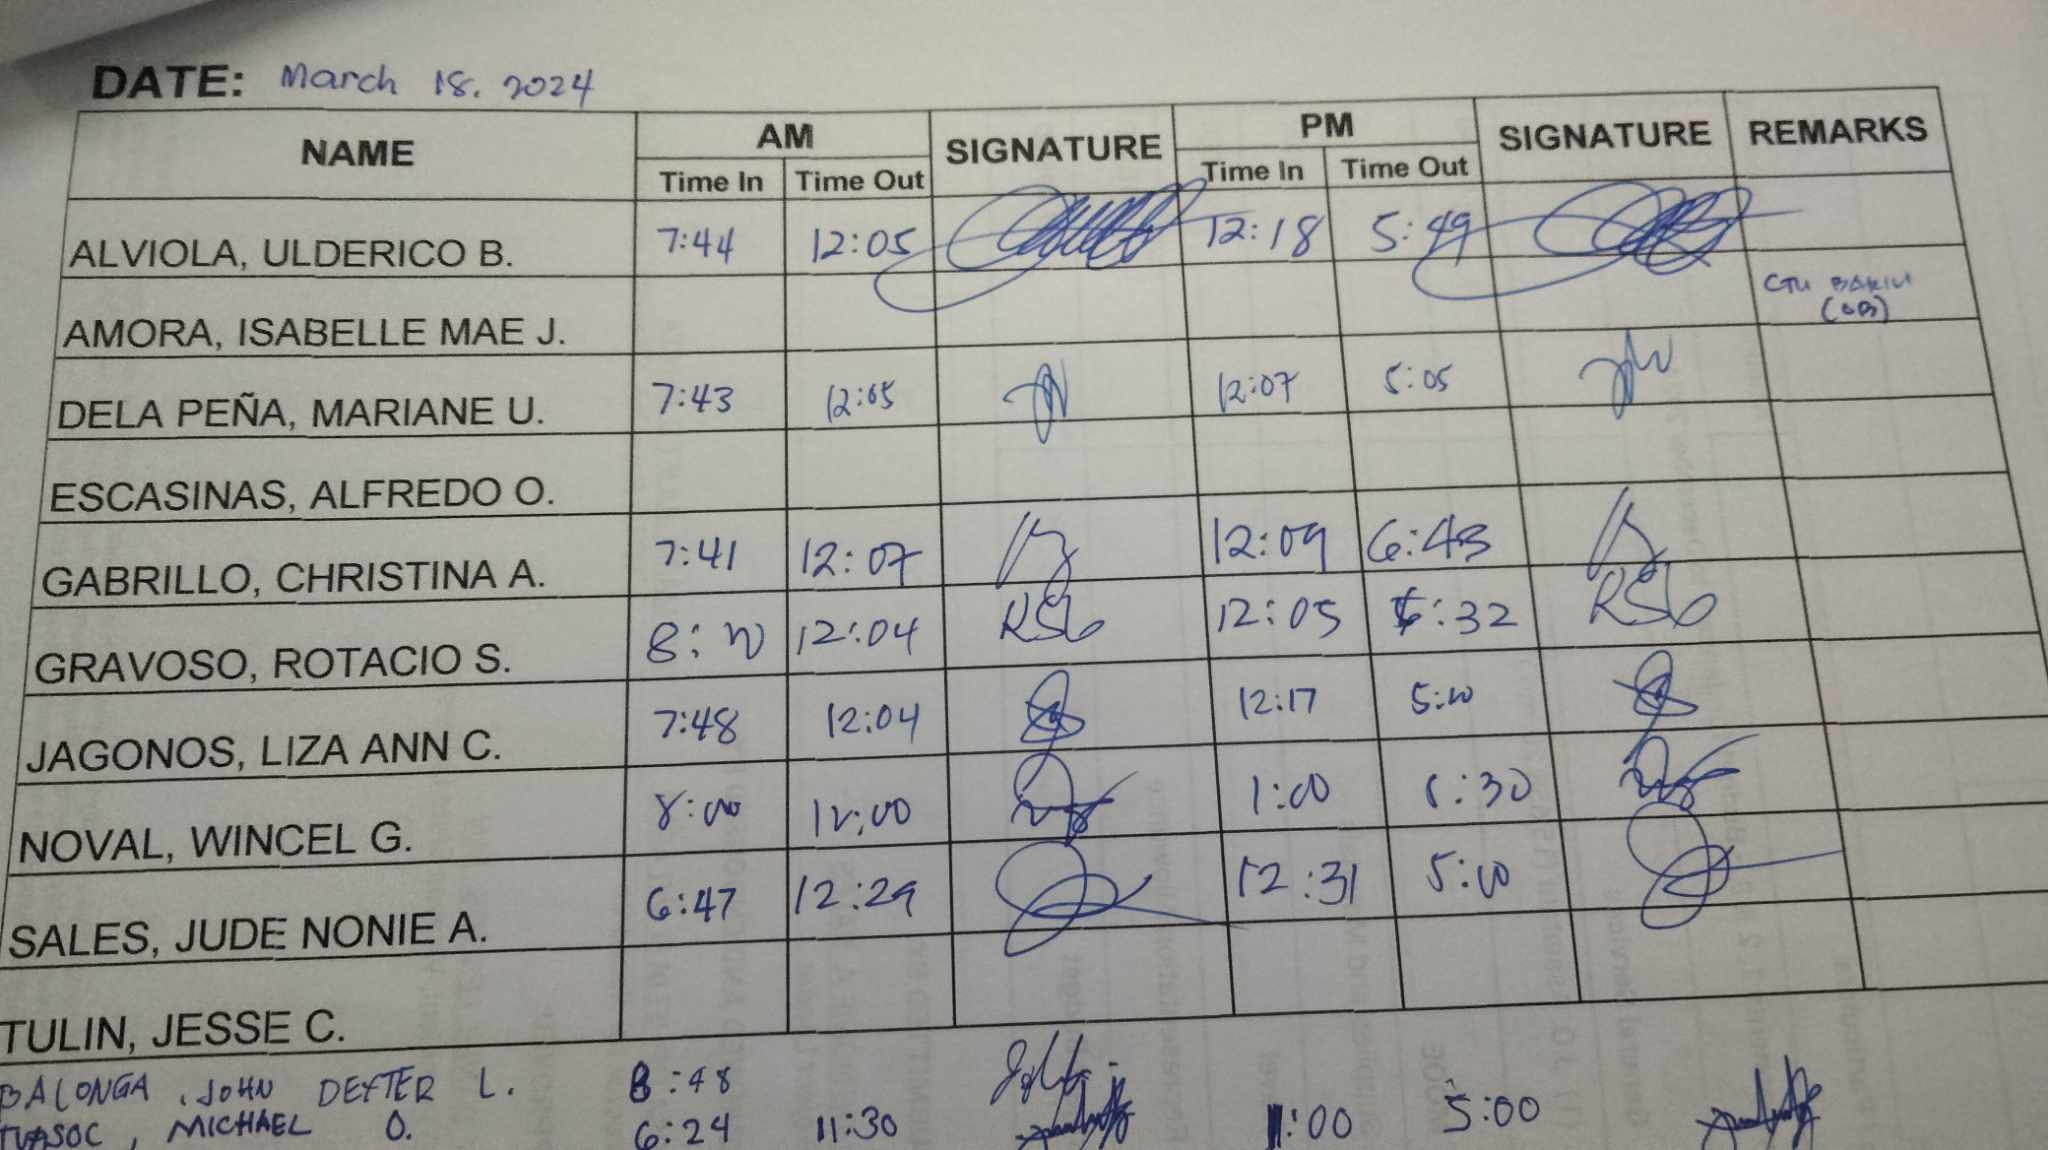 DATE: March 18, 2024
NAME AM SIGNATURE PM SIGNATURE REMARKS
Time In Time Out Time In Time Out
ALVIOLA, ULDERICO B. 7:44 12:05 12:18 5:49
AMORA, ISABELLE MAE J. CTU
(OB)
DELA PEÑA, MARIANE U. 7:43 12:05 12:07 5:05
ESCASINAS, ALFREDO O.
GABRILLO, CHRISTINA A. 7:41 12:07 12:09 6:43
GRAVOSO, ROTACIO S. 12:04 RSG 12:05 RSG
JAGONOS, LIZA ANN C. 7:48 12:04 12:17 5:00
NOVAL, WINCEL G. 8:00 12:00 1:00
SALES, JUDE NONIE A. 6:47 12:29 12:31 5:00
TULIN, JESSE C.
BALONGA, JOHN DEXTER L. 8:48
MICHAEL O. 6:24 11:30 1:00 5:00